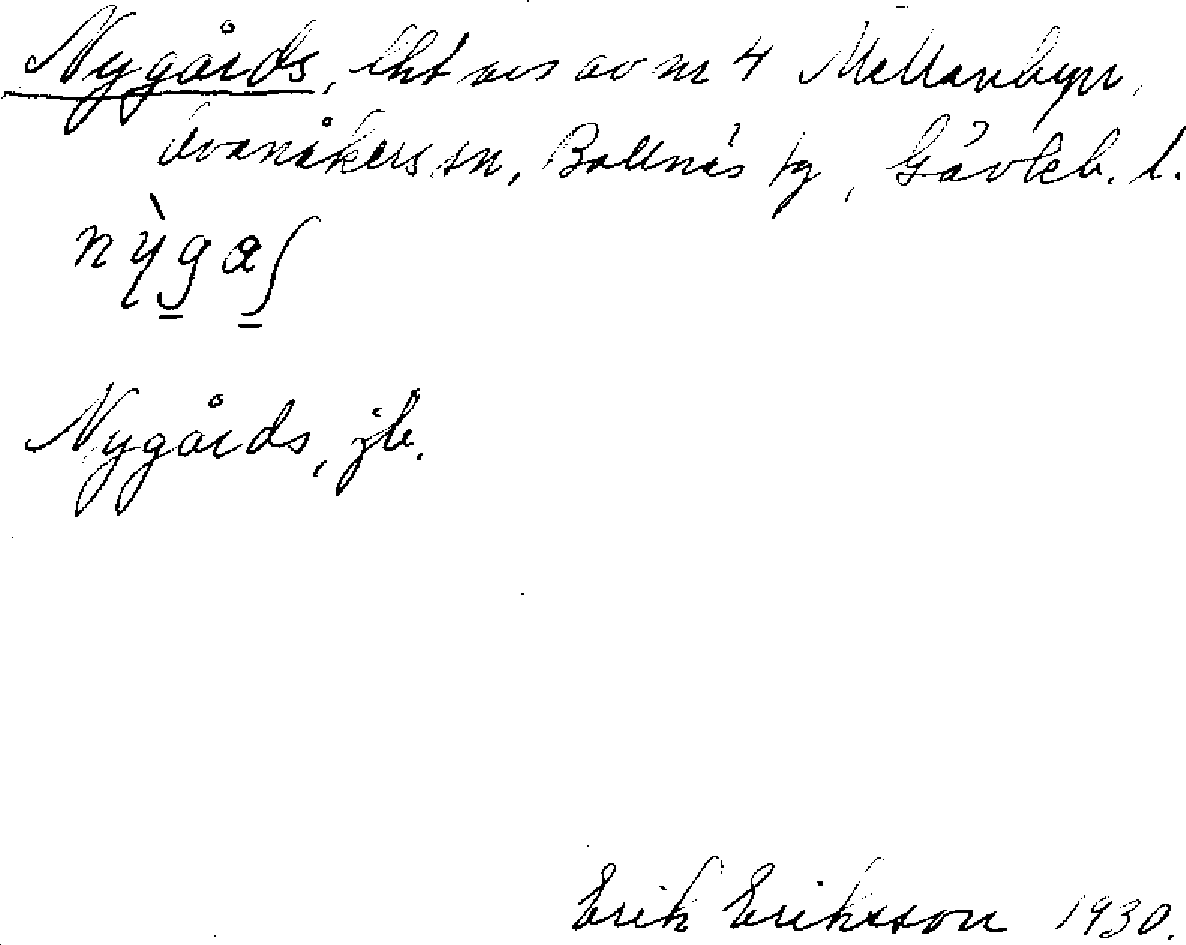 Nygårds, lht av nr 4 Mellanbyn,
Ovanåkers sn, Bollnäs tg, Gävleb. l.
nỳgaʃ
Nygårds, jb.
Erik Eriksson 1930.